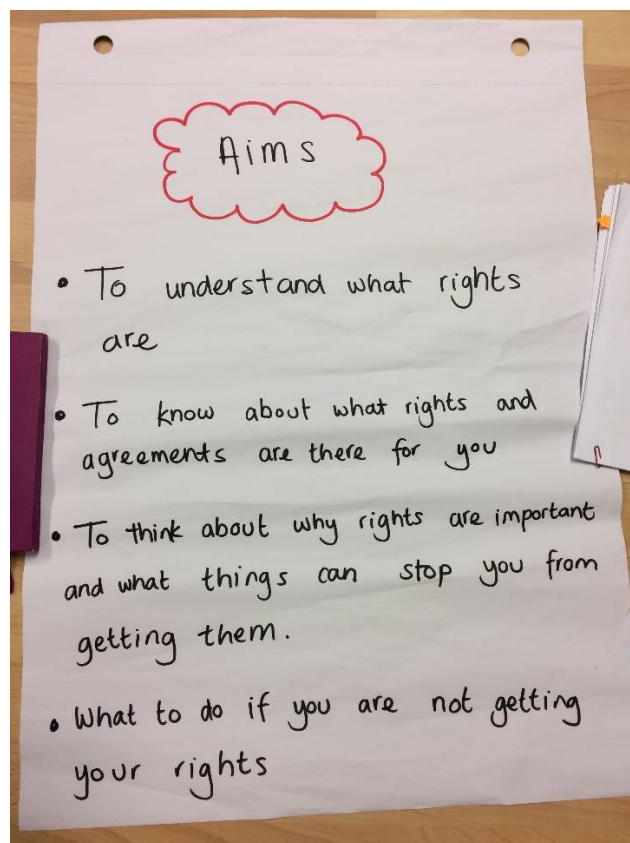 Aims
• To understand what rights
are
• To know about what rights and
agreements are there for you
• To think about why rights are important
and what things can stop you from
getting them.
• What to do if you are not getting
your rights